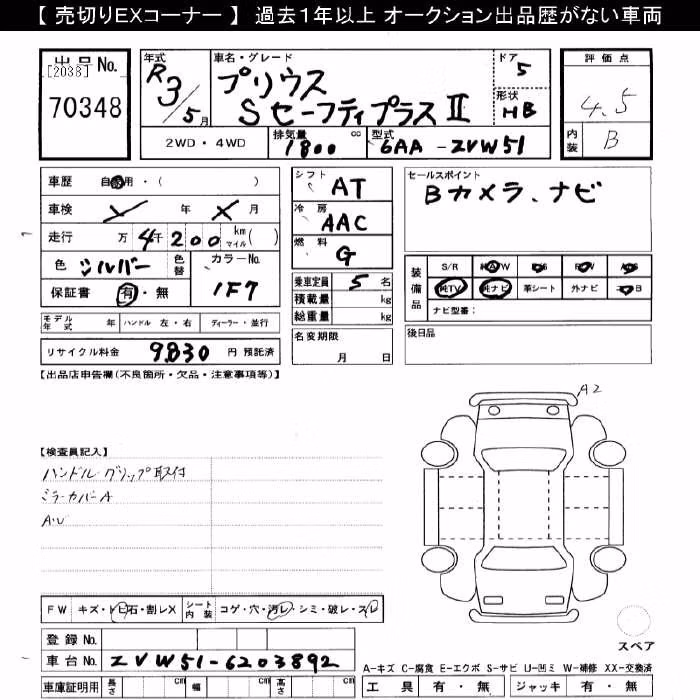 【 売切りEXコーナー 】 過去1年以上 オークション出品歴がない車両
出品 No. [2038] 70348
年式 R3/5月
車名・グレード プリウス Sセーフティプラス II
ドア 5
形状 HB
評価点 4.5
内装 B
2WD・4WD
排気量 1800 cc
型式 6AA-ZVW51
車歴 自家用・( )
車検 年 月
走行 万 4千 2 0 0 km マイル ( )
色 シルバー 色替
カラーNo. 1F7
保証書 有・無
シフト AT
冷房 AAC
燃料 G
乗車定員 5 名
積載量 kg
総重量 kg
名変期限 月 日
セールスポイント
Bカメラ、ナビ
装備品 S/R 純AW
純TV 純ナビ 革シート 外ナビ
ナビ型番:
後日品
モデル年式 年 ハンドル 左・右 ディーラー・並行
リサイクル料金 9830 円 預託済
【出品店申告欄(不良箇所・欠品・注意事項等)】
A2
【検査員記入】
ハンドルグリップ取付
ミラーカバーA
A.U
FW キズ・トビ石・割レX シート内装 コゲ・穴・汚レ・シミ・破レ・スレ
登録 No.
車台 No. ZVW51-6203892
スペア
A-キズ C-腐食 E-エクボ S-サビ U-凹ミ W-補修 XX-交換済
車庫証明用 長さ cm 幅 cm 高さ cm
工具 有・無 ジャッキ 有・無